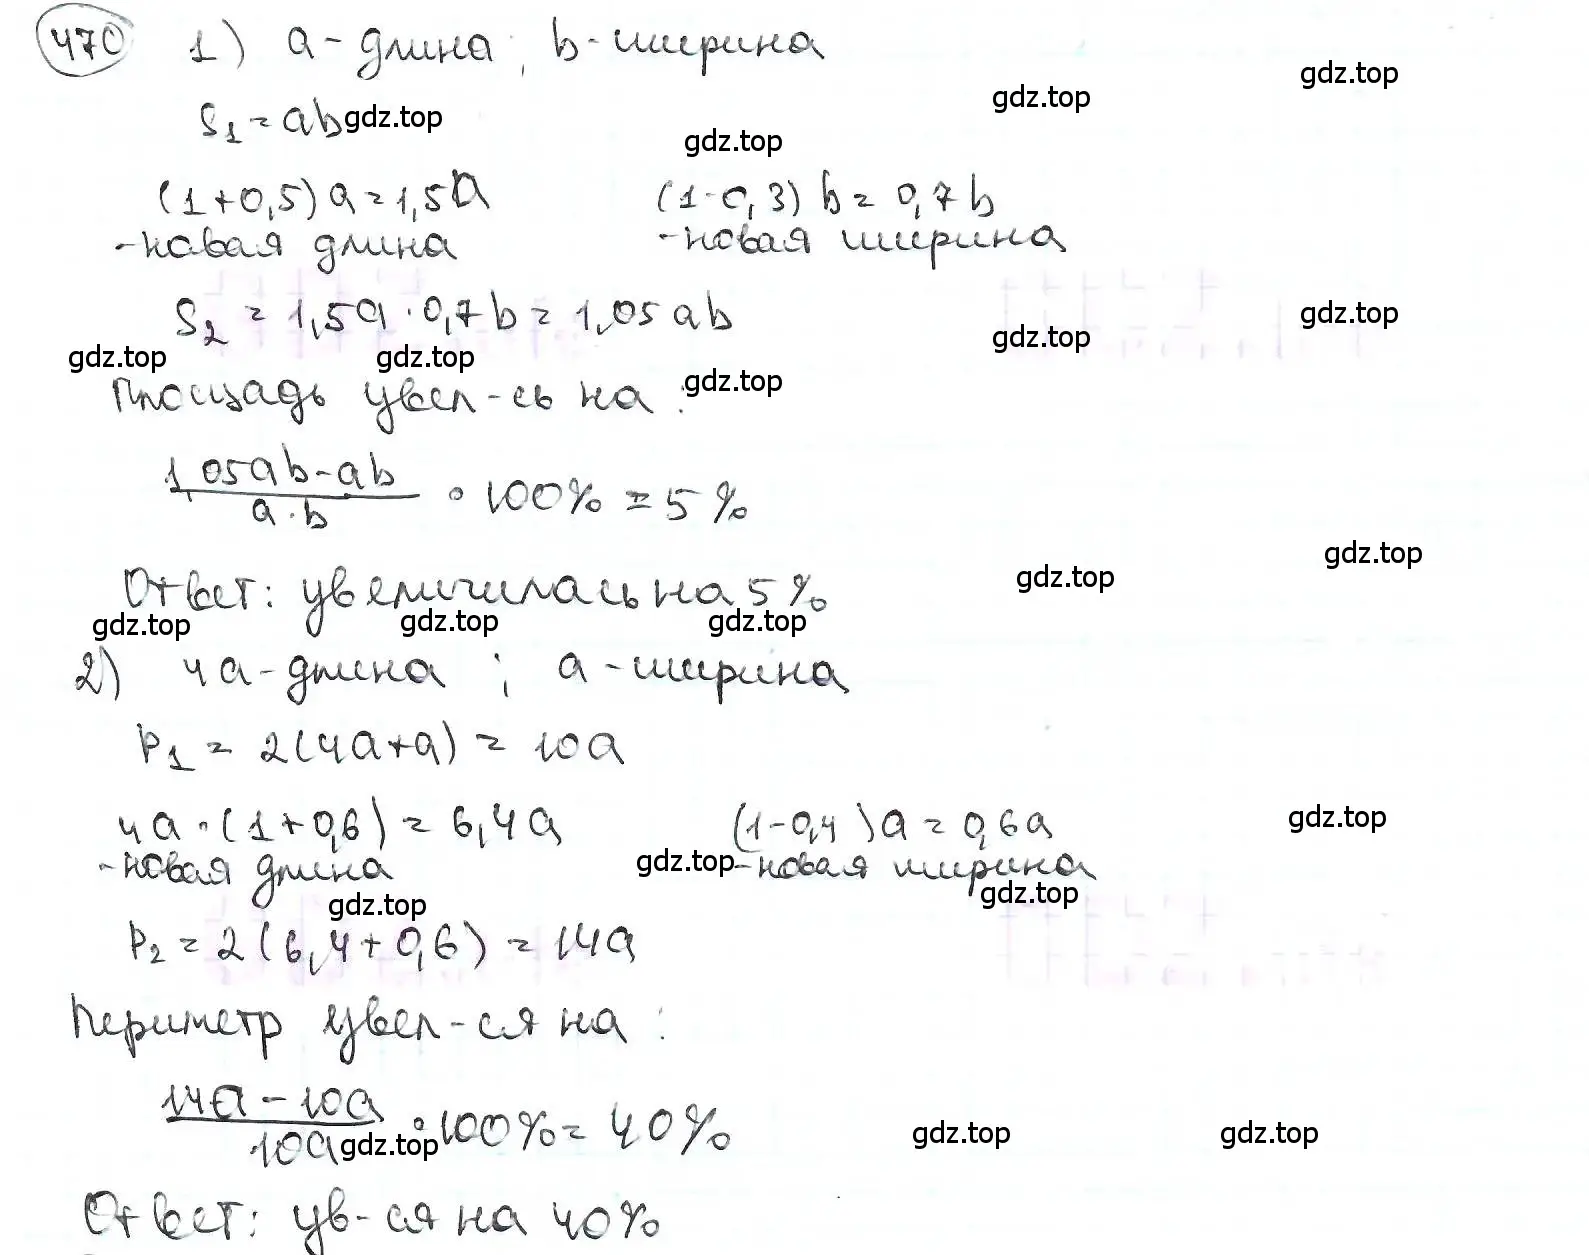 470 1) a-длина, b-ширина
gdz.top
gdz.top
S₁ = ab gdz.top
gdz.top
(1+0,5)a=1,5a (1-0,3)b=0,7b
-новая длина -новая ширина
S₂ = 1,5a·0,7b=1,05ab
gdz.top
gdz.top
gdz.top gdz.top
Площадь увел-сь на: gdz.top
(1,05ab-ab)/(a·b) · 100% = 5%
gdz.top
gdz.top
Ответ: увеличилась на 5%
gdz.top gdz.top gdz.top
2) 4a-длина; a-ширина
P₁ = 2(4a+a) = 10a
4a·(1+0,6)=6,4a (1-0,4)a=0,6a gdz.top
-новая длина gdz.top -новая ширина
gdz.top gdz.top
P₂ = 2(6,4+0,6)=14a
Периметр увел-ся на:
(14a-10a)/(10a) · 100% = 40%
gdz.top gdz.top gdz.top
Ответ: ув-ся на 40%